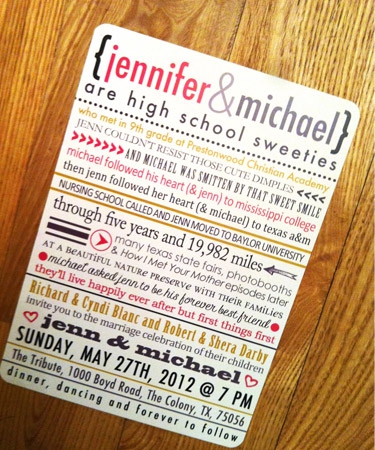 {jennifer&michael}
are high school sweeties
who met in 9th grade at Prestonwood Christian Academy
JENN COULDN'T RESIST THOSE CUTE DIMPLES
AND MICHAEL WAS SMITTEN BY THAT SWEET SMILE
michael followed his heart (& jenn) to mississippi college
then jenn followed her heart (& michael) to texas a&m
NURSING SCHOOL CALLED AND JENN MOVED TO BAYLOR UNIVERSITY
through five years and 19,982 miles
many texas state fairs, photobooths
& How I Met Your Mother episodes later
AT A BEAUTIFUL NATURE PRESERVE WITH THEIR FAMILIES
michael asked jenn to be his forever best friend
they'll live happily ever after but first things first
Richard & Cyndi Blanc and Robert & Shera Darby
invite you to the marriage celebration of their children
jenn & michael
SUNDAY, MAY 27TH, 2012 @ 7 PM
The Tribute, 1000 Boyd Road, The Colony, TX, 75056
dinner, dancing and forever to follow